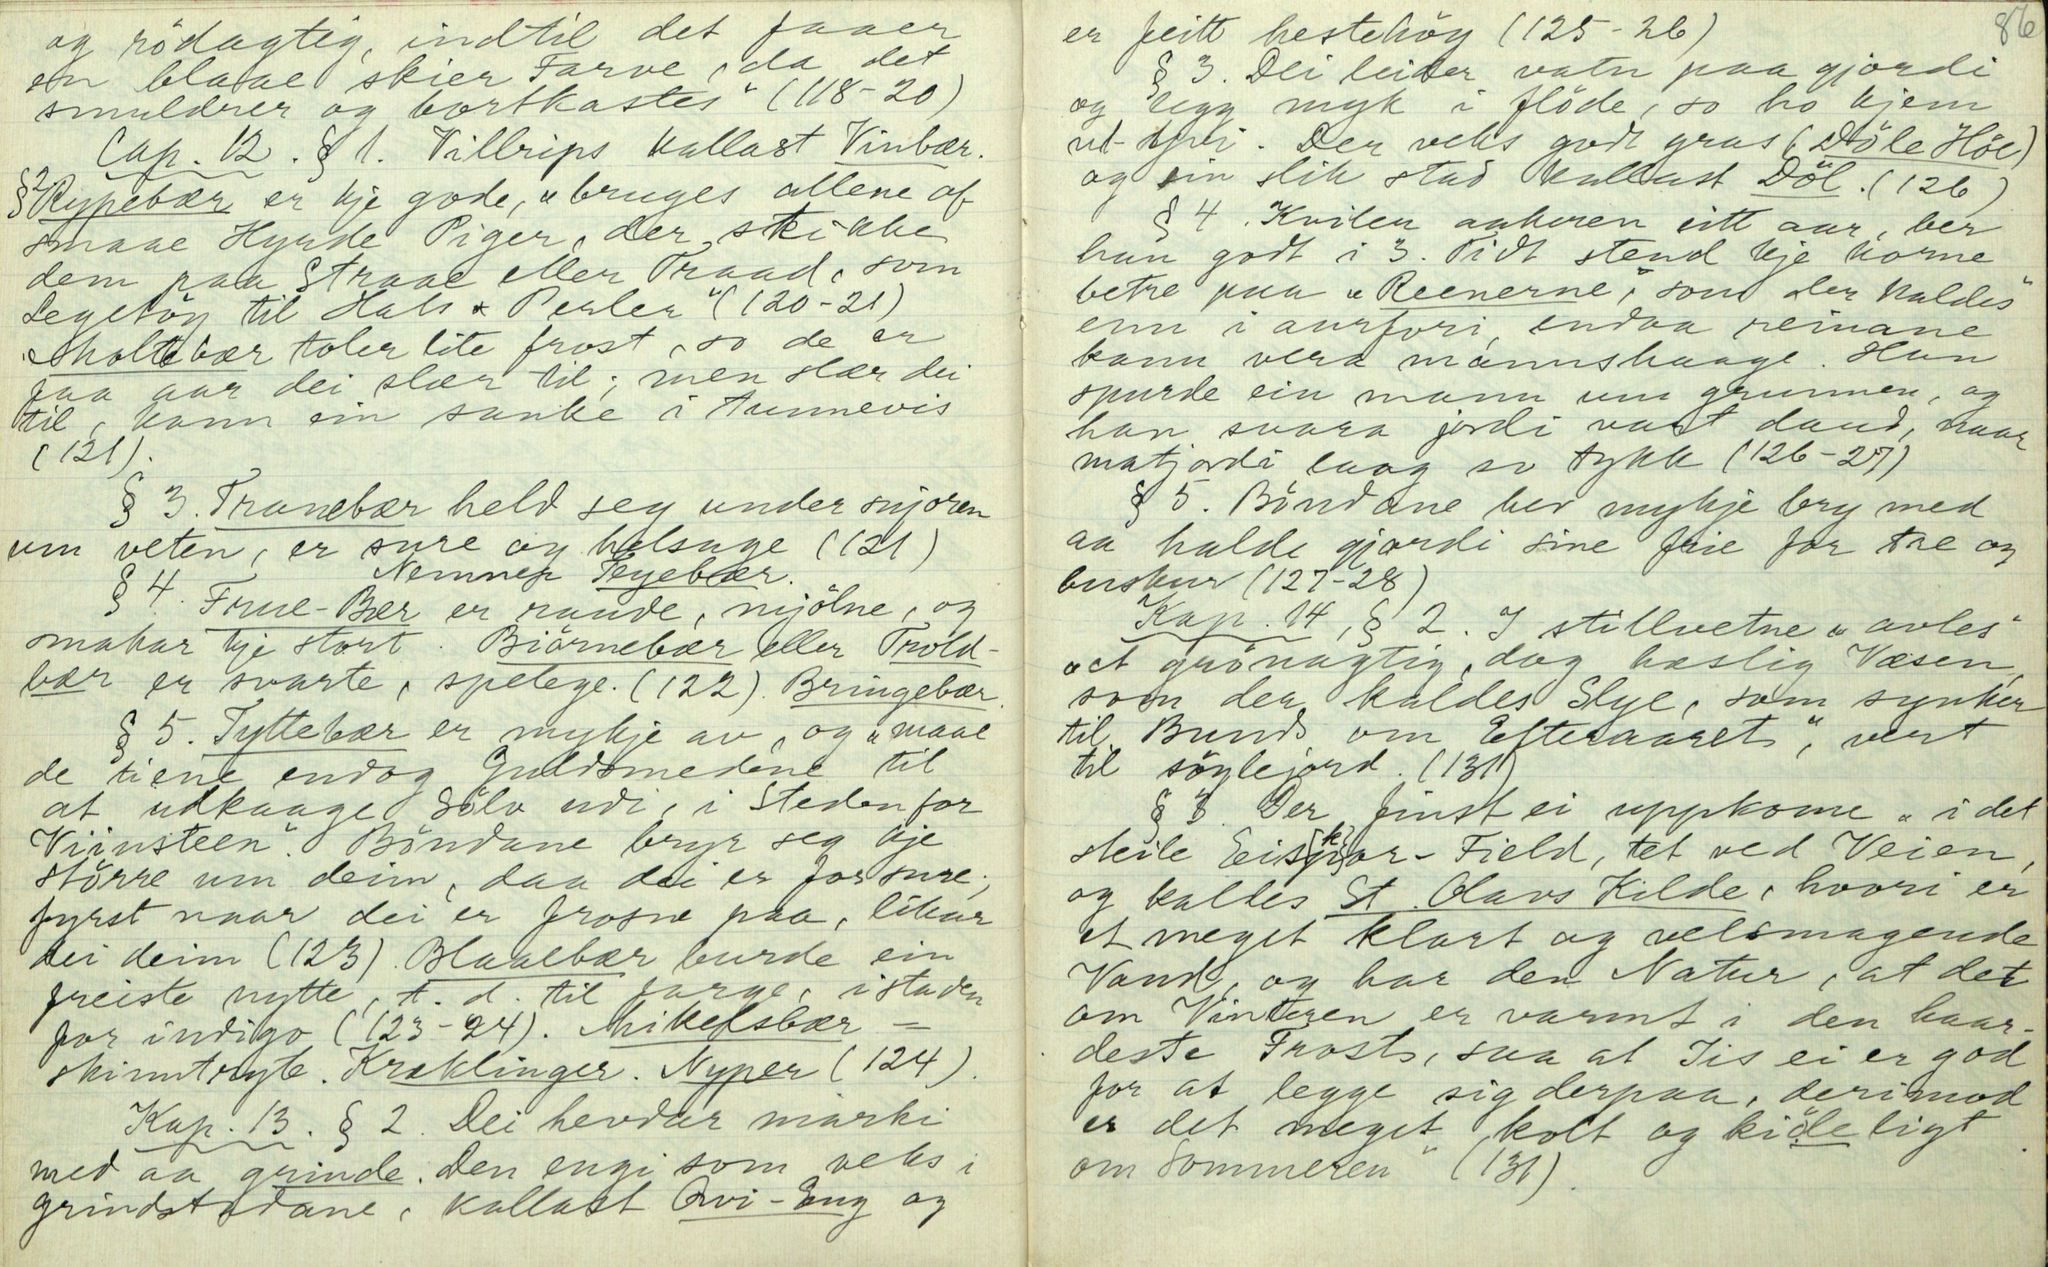 og rödagtig, indtil det faaer
en blaae skier Farve, da det
smuldrer og bortkastes" (118-20)
Cap. 12. § 1. Villrips kallast Vinbær.
§2 Rypebær er kje gode, "bruges allene af
smaae Hyrde Piger, der stikke
dem paa Straae eller Traad, som
Legetöy til Hals & Perler" (120-21)
Moltebær toler lite frost, so de er
faa aar dei slær til; men slær dei
til, kann ein sanke i tunnevis
(121).
§ 3. Tranebær held seg under snjoren
um veten, er sure og helsuge (121)
Nemner Teyebær.
§ 4. Frue-Bær er raude, mjölne, og
smakar kje stort. Biörnebær eller Trold-
bær er svarte, spelege. (122). Bringebær.
§ 5. Tyttebær er mykje av, og "maae
de tiene endog Guldsmedene til
at udkaage Sölv udi, i Steden for
Viinsteen". Böndane bryr seg kje
större um deim, daa dei er for sure;
fyrst naar dei er frosne paa, likar
dei deim (123). Blaaebær burde ein
freiste nytte, t. d. til farge, istaden
for indigo (123-24). Mikelsbær =
skinntryte. Kræklinger. Nyper (124).
Kap. 13. § 2. Dei hevdar marki
med aa grinde. Den engi som veks i
grindstødane, kallast Qvi-Eng og
86
er feitt hestehöy (125-26)
§ 3. Dei leider vatn paa gjordi
og legg myk i flöde, so ho kjem
ut-yvi. Der veks godt gras (Döle Höe)
og ein slik stad kallast Döl. (126)
§ 4. Kviler aakeren eitt aar, ber
han godt i 3. Tidt stend kje korne
betre paa "Reenerne", som der kaldes"
enn i aurfori, endaa reinane
kann vera mannshaage. Han
spurde ein mann um grunnen, og
han svara jordi vart daud, naar
matjordi laag so tykk (126-27)
§ 5. Böndane hev mykje bry med
aa halde gjordi sine frie for tre og
buskur (127-28)
Kap. 14, § 2. I stillvetne "avles"
"et grönagtig, dog hæslig Væsen,
som der kaldes Slye, som synker
til Bunds om Efteraaret", vert
til söylejord. (131)
§ 3. Der finst ei uppkome "i det
steile Eis[k]jor-Field, tet ved Veien,
og kaldes St. Olavs Kilde, hvori er
et meget klart og velsmagende
Vand, og har den Natur, at det
om Vinteren er varmt i den haar-
deste Frost, saa at Iis ei er god
for at legge sig derpaa, derimod
er det meget kolt og kiöleligt
om Sommeren" (131).